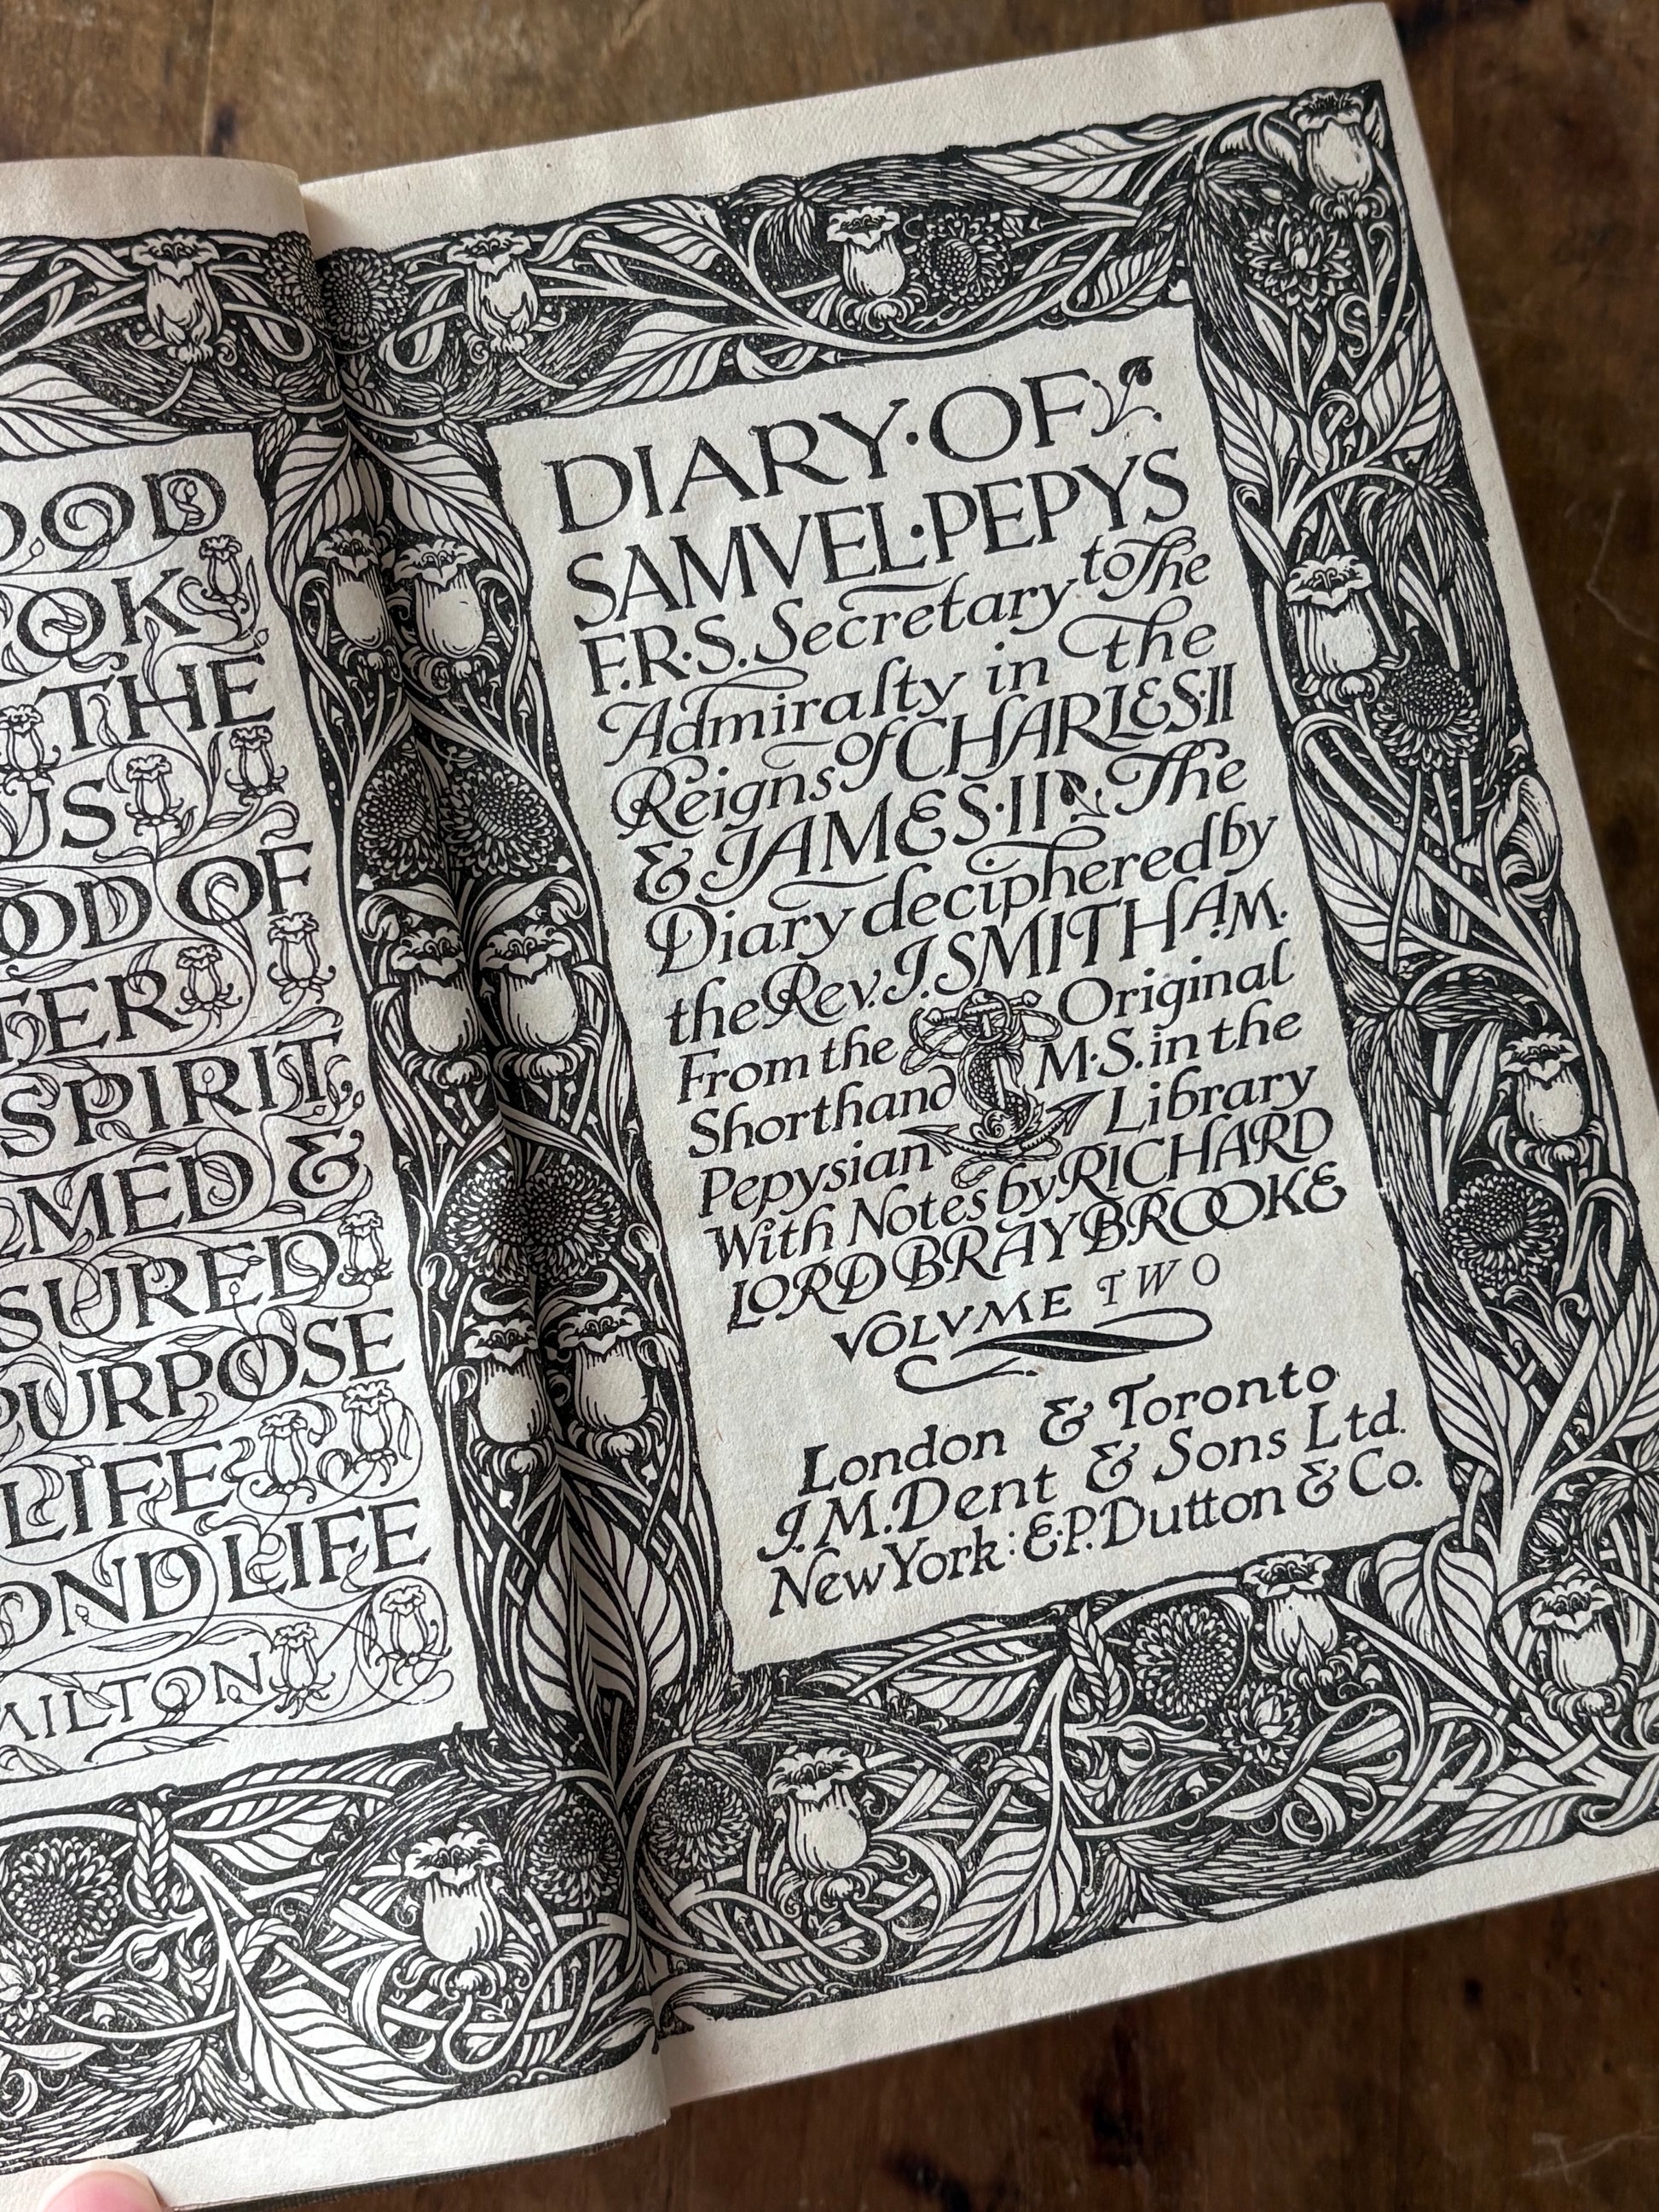 OOD
OOK
THE
US
OOD OF
TER
SPIRIT,
MED &
SURED
PURPOSE
LIFE
OND LIFE
MILTON
DIARY·OF
SAMVEL·PEPYS
F.R.S. Secretary to The
Admiralty in the
Reigns of CHARLES·II
& JAMES·II The
Diary deciphered by
the Rev. J. SMITH A.M.
From the Original
Shorthand M.S. in the
Pepysian Library
With Notes by RICHARD
LORD BRAYBROOKE
VOLVME TWO
London & Toronto
J.M. Dent & Sons Ltd.
New York: E.P. Dutton & Co.